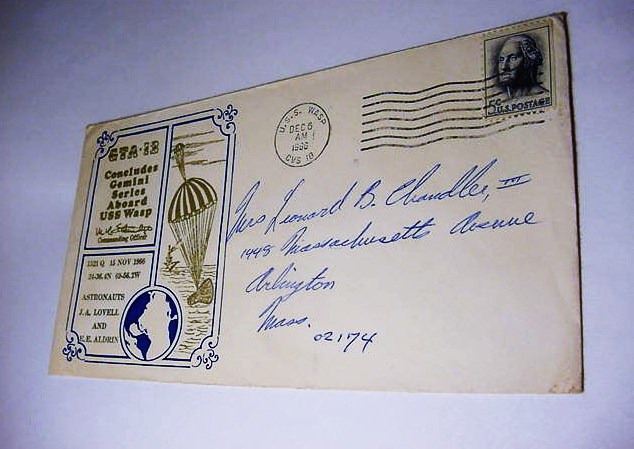 GTA-12
Concludes
Gemini
Series
Aboard
USS Wasp
Commanding Officer
1521 Q 15 NOV 1966
24-36.4N 69-56.2W
ASTRONAUTS
J.A. LOVELL
AND
E.E. ALDRIN
U.S.S. WASP
DEC 6
AM
1966
CVS 18
5c
U.S. POSTAGE
Mrs Leonard B. Chandler, III
1448 Massachusetts Avenue
Arlington
Mass.
02174